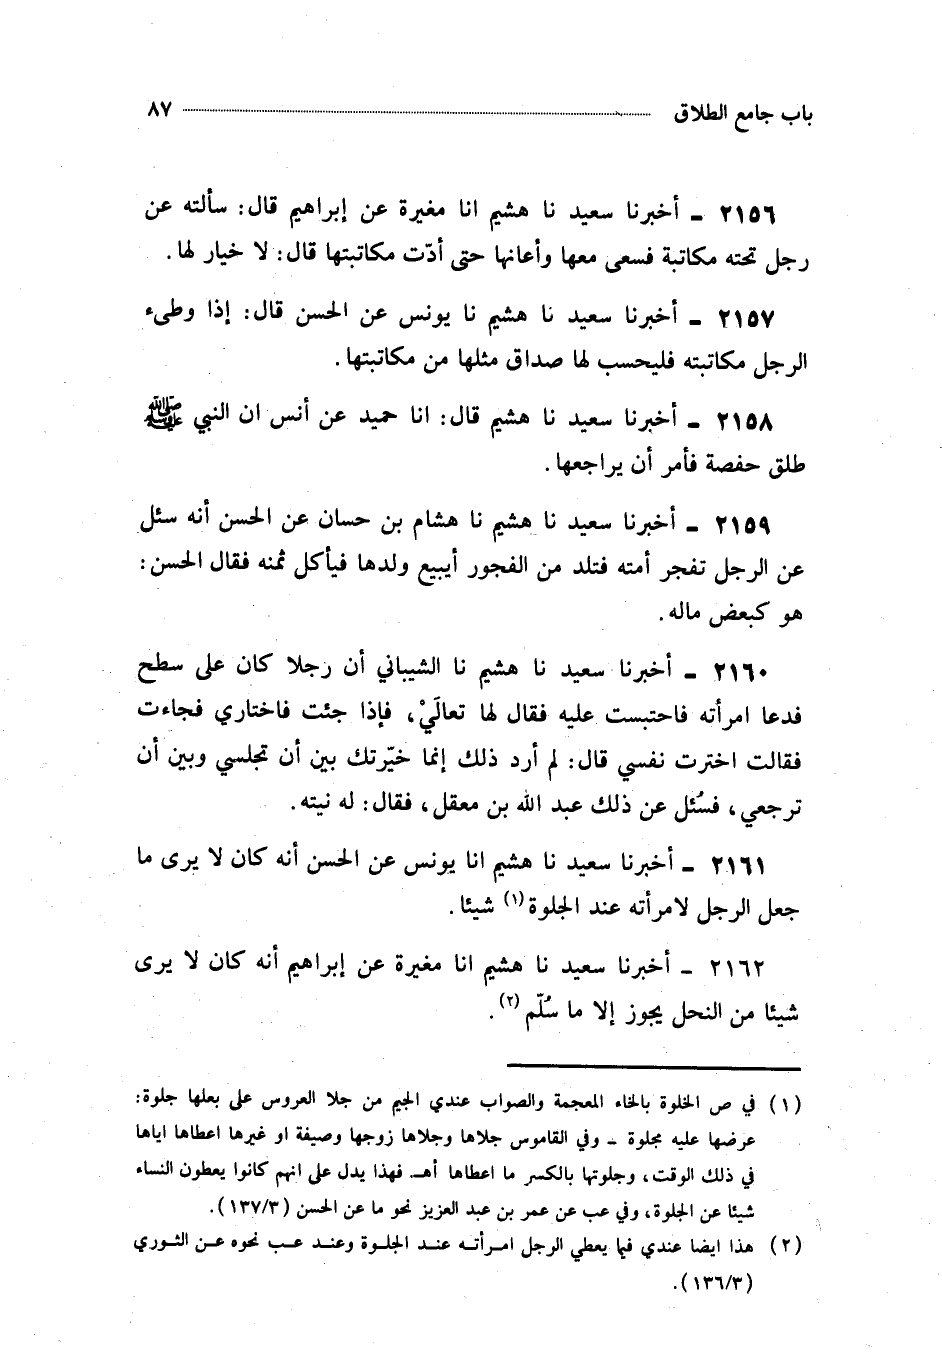 باب جامع الطلاق ٨٧
٢١٥٦ ـ أخبرنا سعيد نا هشيم انا مغيرة عن إبراهيم قال: سألته عن
رجل تحته مكاتبة فسعى معها وأعانها حتى أدّت مكاتبتها قال: لا خيار لها.
٢١٥٧ ـ أخبرنا سعيد نا هشيم نا يونس عن الحسن قال: إذا وطىء
الرجل مكاتبته فليحسب لها صداق مثلها من مكاتبتها.
٢١٥٨ ـ أخبرنا سعيد نا هشيم قال: انا حميد عن أنس ان النبي ﷺ
طلق حفصة فأمر أن يراجعها.
٢١٥٩ ـ أخبرنا سعيد نا هشيم نا هشام بن حسان عن الحسن أنه سئل
عن الرجل تفجر أمته فتلد من الفجور أيبيع ولدها فيأكل ثمنه فقال الحسن:
هو كبعض ماله.
٢١٦٠ ـ أخبرنا سعيد نا هشيم نا الشيباني أن رجلا كان على سطح
فدعا امرأته فاحتبست عليه فقال لها تعالَيْ، فإذا جئت فاختاري فجاءت
فقالت اخترت نفسي قال: لم أرد ذلك إنما خيّرتك بين أن تجلسي وبين أن
ترجعي، فسُئل عن ذلك عبد الله بن معقل، فقال: له نيته.
٢١٦١ ـ أخبرنا سعيد نا هشيم انا يونس عن الحسن أنه كان لا يرى ما
جعل الرجل لامرأته عند الجلوة(١) شيئا.
٢١٦٢ ـ أخبرنا سعيد نا هشيم انا مغيرة عن إبراهيم أنه كان لا يرى
شيئا من النحل يجوز إلا ما سُلّم(٢).
(١) في ص الخلوة بالخاء المعجمة والصواب عندي الجيم من جلا العروس على بعلها جلوة:
عرضها عليه مجلوة ـ وفي القاموس جلاها وجلاها زوجها وصيفة او غيرها اعطاها اياها
في ذلك الوقت، وجلوتها بالكسر ما اعطاها أهـ فهذا يدل على انهم كانوا يعطون النساء
شيئا عن الجلوة، وفي عب عن عمر بن عبد العزيز نحو ما عن الحسن (١٣٧/٣).
(٢) هذا ايضا عندي فيما يعطي الرجل امرأته عند الجلوة وعند عب نحوه عن الثوري
(١٣٦/٣).